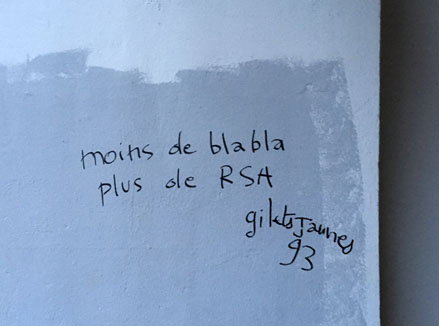 moins de blabla
plus de RSA
gilets jaunes
93